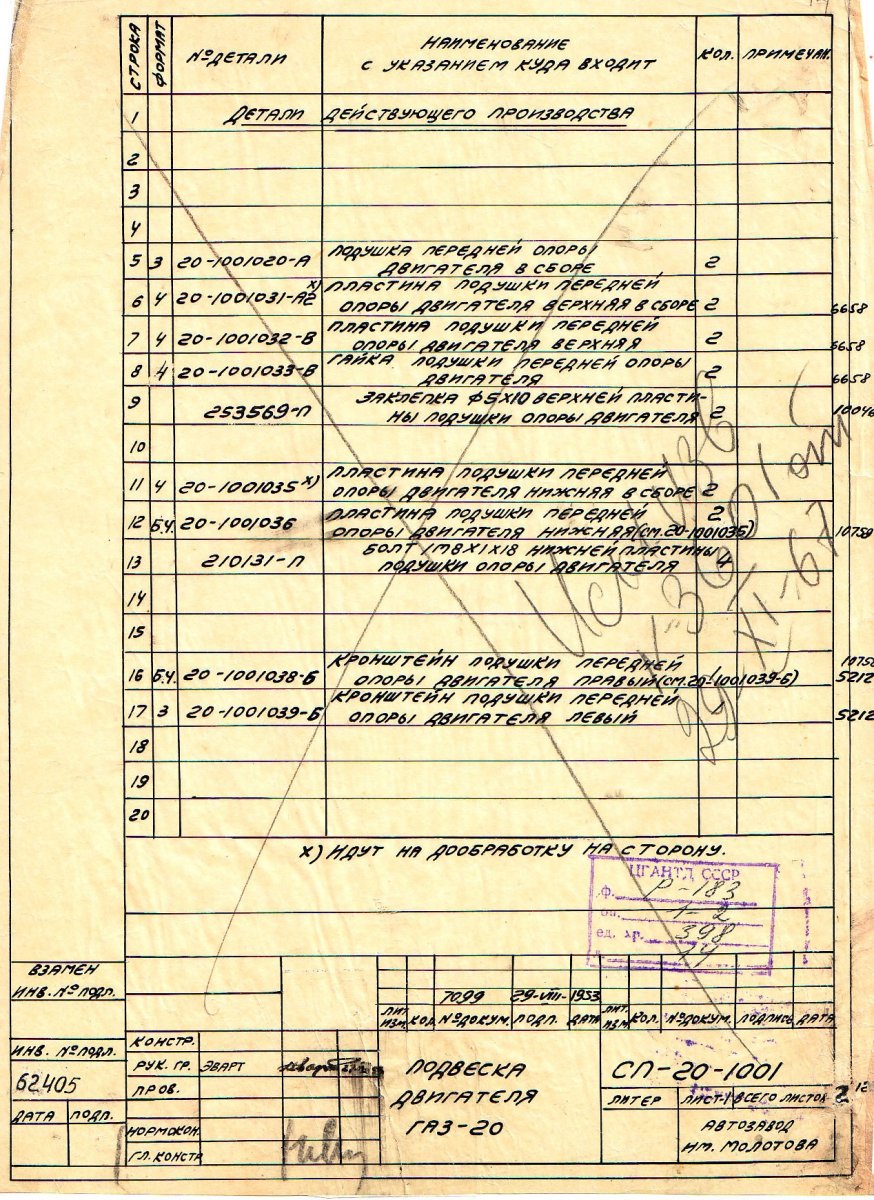 СТРОКА ФОРМАТ № ДЕТАЛИ НАИМЕНОВАНИЕ С УКАЗАНИЕМ КУДА ВХОДИТ КОЛ. ПРИМЕЧАН.
1 ДЕТАЛИ ДЕЙСТВУЮЩЕГО ПРОИЗВОДСТВА
2
3
4
5 3 20-1001020-А ПОДУШКА ПЕРЕДНЕЙ ОПОРЫ
ДВИГАТЕЛЯ В СБОРЕ 2
6 4 20-1001031-А2 х) ПЛАСТИНА ПОДУШКИ ПЕРЕДНЕЙ
ОПОРЫ ДВИГАТЕЛЯ ВЕРХНЯЯ В СБОРЕ 2 6658
7 4 20-1001032-В ПЛАСТИНА ПОДУШКИ ПЕРЕДНЕЙ
ОПОРЫ ДВИГАТЕЛЯ ВЕРХНЯЯ 2 6658
8 4 20-1001033-В ГАЙКА ПОДУШКИ ПЕРЕДНЕЙ ОПОРЫ
ДВИГАТЕЛЯ 2 6658
9 253569-П ЗАКЛЕПКА ф5х10 ВЕРХНЕЙ ПЛАСТИ-
НЫ ПОДУШКИ ОПОРЫ ДВИГАТЕЛЯ 2 10046
10
11 4 20-1001035 х) ПЛАСТИНА ПОДУШКИ ПЕРЕДНЕЙ
ОПОРЫ ДВИГАТЕЛЯ НИЖНЯЯ В СБОРЕ 2
12 Б.Ч. 20-1001036 ПЛАСТИНА ПОДУШКИ ПЕРЕДНЕЙ 2
ОПОРЫ ДВИГАТЕЛЯ НИЖНЯЯ (СМ. 20-1001035) 10759
13 210131-П БОЛТ 1М8х1х18 НИЖНЕЙ ПЛАСТИНЫ
ПОДУШКИ ОПОРЫ ДВИГАТЕЛЯ 4
14
15
16 Б.Ч. 20-1001038-Б КРОНШТЕЙН ПОДУШКИ ПЕРЕДНЕЙ
ОПОРЫ ДВИГАТЕЛЯ ПРАВЫЙ (СМ. 20-1001039-Б) 1 5212
17 3 20-1001039-Б КРОНШТЕЙН ПОДУШКИ ПЕРЕДНЕЙ
ОПОРЫ ДВИГАТЕЛЯ ЛЕВЫЙ 1 5212
18
19
20
29-XI-67
х) ИДУТ НА ДООБРАБОТКУ НА СТОРОНУ.
ЦГАНТД СССР
ф. Р-183
оп. 1-2
ед. хр. 398
ВЗАМЕН
ИНВ. № ПОДЛ.
7099 29-VIII-1953
ЛИТ. ИЗМ. КОЛ. № ДОКУМ. ПОДП. ДАТА ЛИТ. ИЗМ. КОЛ. № ДОКУМ. ПОДПИСЬ ДАТА
ИНВ. № ПОДЛ.
62405
ДАТА ПОДП.
КОНСТР.
РУК. ГР. ЭВАРТ
ПРОВ.
НОРМОКОН.
ГЛ. КОНСТР.
ПОДВЕСКА
ДВИГАТЕЛЯ
ГАЗ-20
СП-20-1001
ЛИТЕР ЛИСТ-1 ВСЕГО ЛИСТОВ 2
АВТОЗАВОД
ИМ. МОЛОТОВА